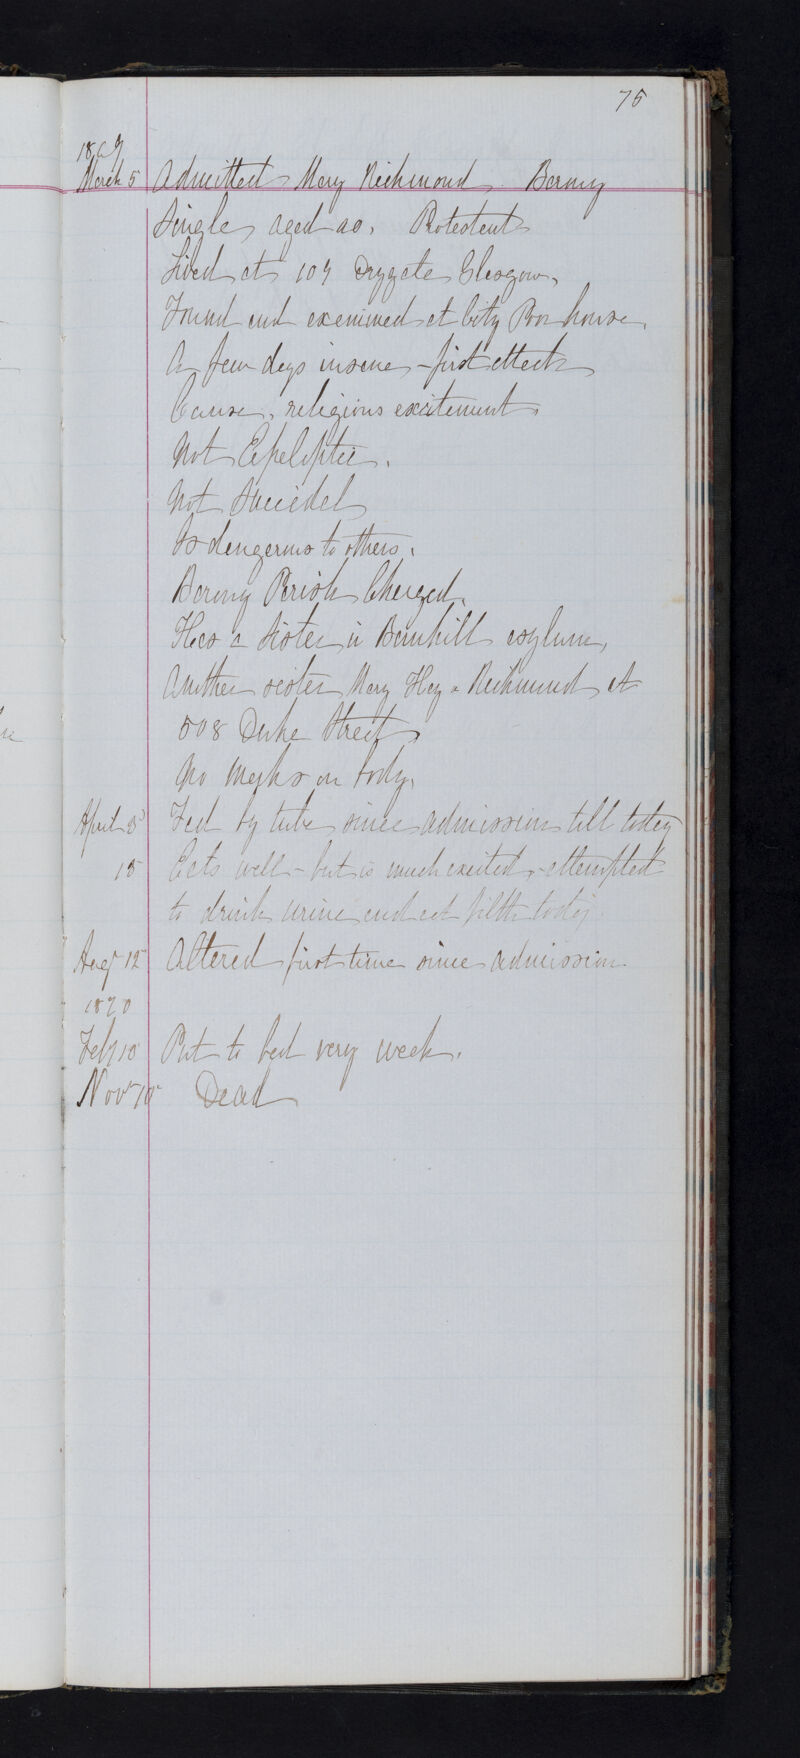 75
1869
March 5 Admitted Mary Richmond Barony
Single, aged 40. Protestant
Lived at 109 Drygate Glasgow.
Found and examined at City Poor house.
A few days insane - first attack
Cause, religious excitement.
Not Epeliptic.
Not Suicidal
Is dangerous to others.
Barony Parish Charged.
Has a sister in Barnhill asylum,
Another sister Mary Hay or Richmond at
508 Duke Street
No marks on body.
April 3 Fed by tube since admission till today
15 Eats well - but is much excited - attempted
to drink urine and eat filth today
Augt 12 Altered first time since admission
1870
Feby 10 Put to bed very weak.
Novr 10 Dead